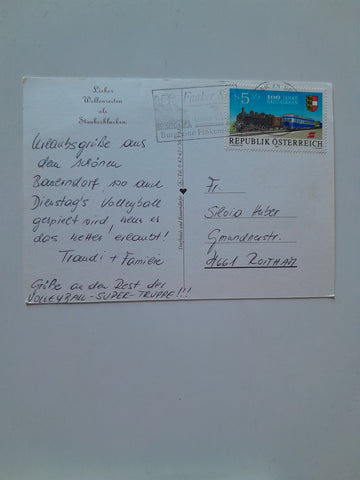 Lieber
Wellenreiten
als
Staubschlucken
Urlaubsgrüße aus
dem schönen
Bauerndorf, wo auch
Dienstag's Volleyball
gespielt wird, wenn es
das Wetter erlaubt!
Traudi + Familie
Grüße an den Rest der
VOLLEYBALL-SUPER-TRUPPE!!!
S 5
100 JAHRE
REPUBLIK ÖSTERREICH
Burgruine Finken
Fr.
Silvia Huber
Gmundnerstr.
4661 ROITHAM